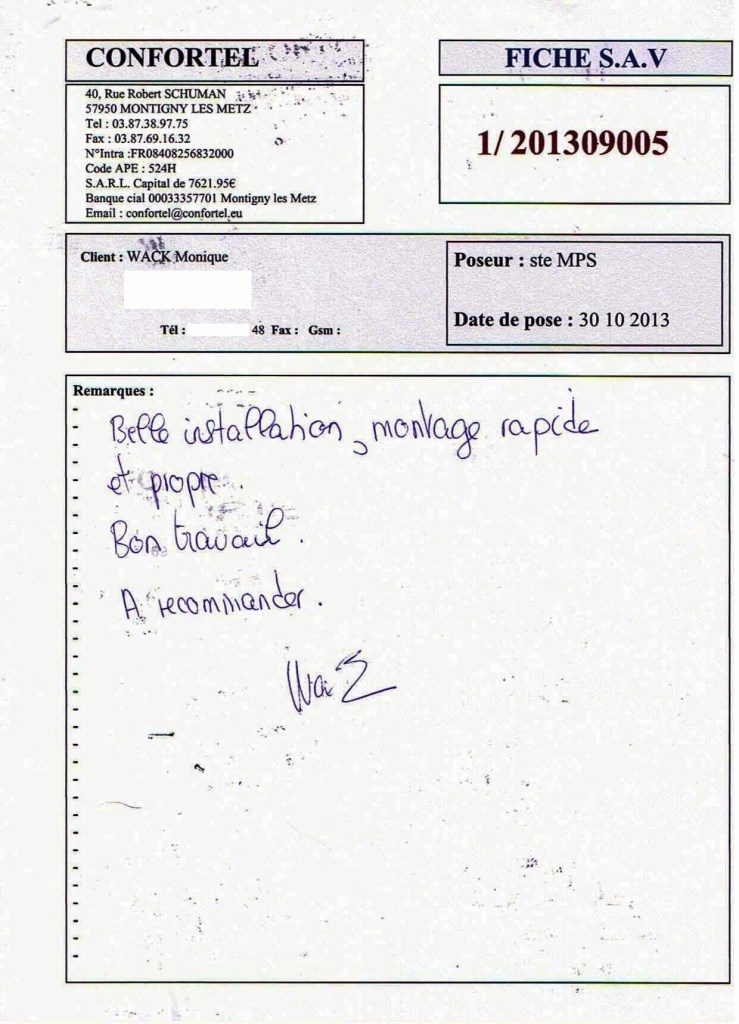 CONFORTEL
FICHE S.A.V
40, Rue Robert SCHUMAN
57950 MONTIGNY LES METZ
Tel : 03.87.38.97.75
Fax : 03.87.69.16.32
N°Intra :FR08408256832000
Code APE : 524H
S.A.R.L. Capital de 7621.95€
Banque cial 00033357701 Montigny les Metz
Email : confortel@confortel.eu
1/ 201309005
Client : WACK Monique
Tél : 48 Fax : Gsm :
Poseur : ste MPS
Date de pose : 30 10 2013
Remarques :
Belle installation, montage rapide
et propre.
Bon travail.
A recommander.